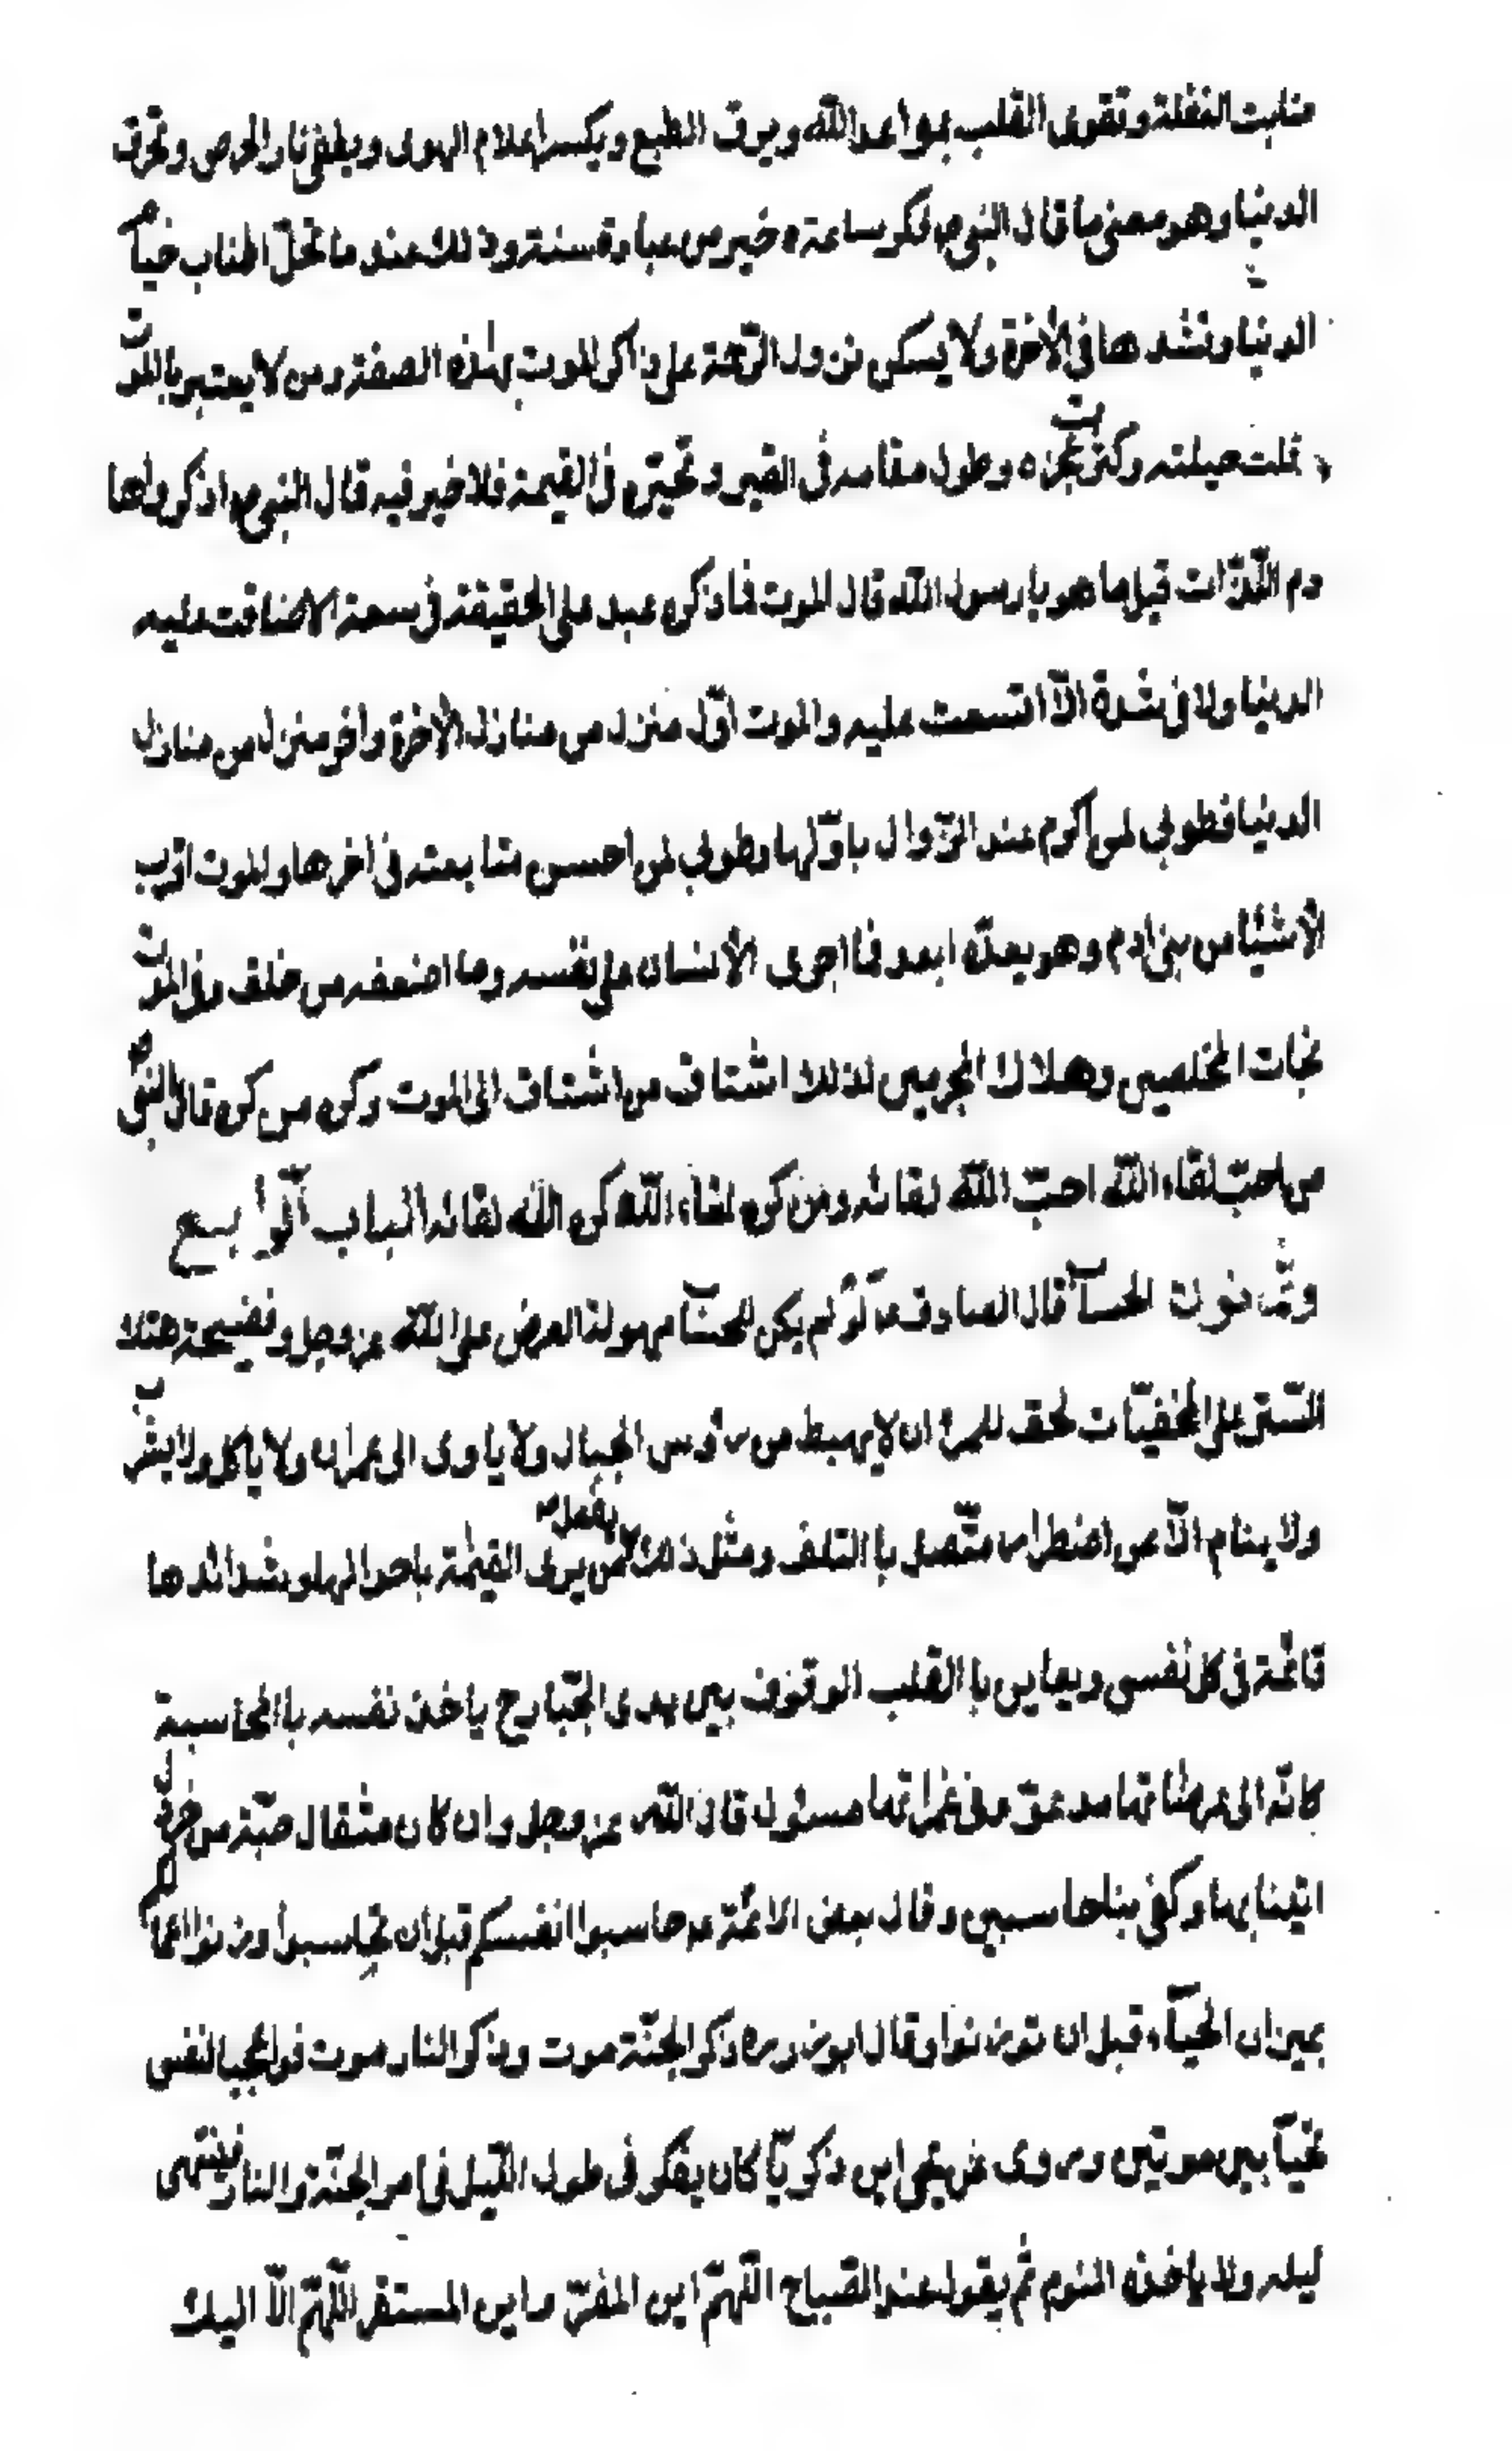 منابت الغفلة وتقوى القلب بمواعد الله ويرق الطبع ويكسر اعلام الهوى ويطفى نار الحرص وتحرق
الدنيا وهو معنى ما قال النبى ص فكر ساعته خير من عبادة سنة وذلك عند ما تحل اطناب خيام
الدنيا وتشدها فى الأخرة ولا يسكن نزول الرحمة على ذاكر الموت بهذه الصفة ومن لا يعتبر بالموت
وقلت حيلته وكثرت عجزه وطول مقامه فى القبر وتحيّره فى القيمة فلا خير فيه قال النبى ص اذكروا ها
دم اللّذات قيل ما هو يا رسول الله قال الموت فما ذكره عبد على الحقيقة فى سعة الا ضاقت عليه
الدنيا ولا فى شدة الّا اتسعت عليه والموت اوّل منزل من منازل الأخرة واخر منزل من منازل
الدنيا فطوبى لمن اكرم عند النزوال باوّلها وطوبى لمن احسن متابعته فى اخرها والموت اقرب
الأشياء من بنى ادم وهو يعدّه ابعد فما اجرى الأنسان على نفسه وما اضعفه من خلق وفى الموت
نجات المخلصين وهلاك المجرمين لذلك اشتاق من اشتاق الى الموت وكره من كره قال النبى ص
من احبّ لقاء الله احبّ الله لقائه ومن كره لقاء الله كره الله لقائه الباب الرابع
وثمانون الحساب قال الصادق ع لو لم يكن للحساب مهولة الّا العرض على الله عز وجل وفضيحة هتك
السّتر على المخفيّات لحق للمرء ان لا يهبط من رؤس الجبال ولا ياوى الى عمران ولا ياكل ولا يشرب
ولا ينام الّا عن اضطرار متّصل با التلف ومثل ذلك يفعل من يرى القيمة باهوالها وشدائدها
قائمة فى كل نفس ويعاين با القلب الوقوف بين يدى الجبّار ح ياخذ نفسه با المحاسبة
كانّه الى عرصاتها مدعوّ وفى غمراتها مسئول قال الله عز وجل وان كان مثقال حبّة من خردل
اتينا بها وكفى بنا حاسبين وقال بعض الائمّة ع حاسبوا انفسكم قبل ان تحاسبوا وزنوا اعمالكم
بميزان الحياء قبل ان توزنوا وقال ابوذر ره ذكر الجنّة موت وذكر النار موت فواعجبا لنفس
تحيا بين موتين وروى عن يحيى ابن ذكريّا كان يفكر فى طول اللّيل فى امر الجنّة والنار فينتهى
ليله ولا ياخذه النوم ثم يقول عند الصّباح اللّهمّ اين المفرّ واين المستقر اللّهمّ الّا اليك